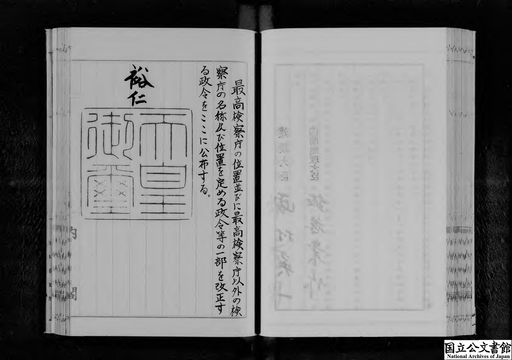 最高検察庁の位置並びに最高検察庁以外の検
察庁の名称及び位置を定める政令等の一部を改正す
る政令をここに公布する。
裕仁
天皇
御璽
内
閣
国立公文書館
National Archives of Japan